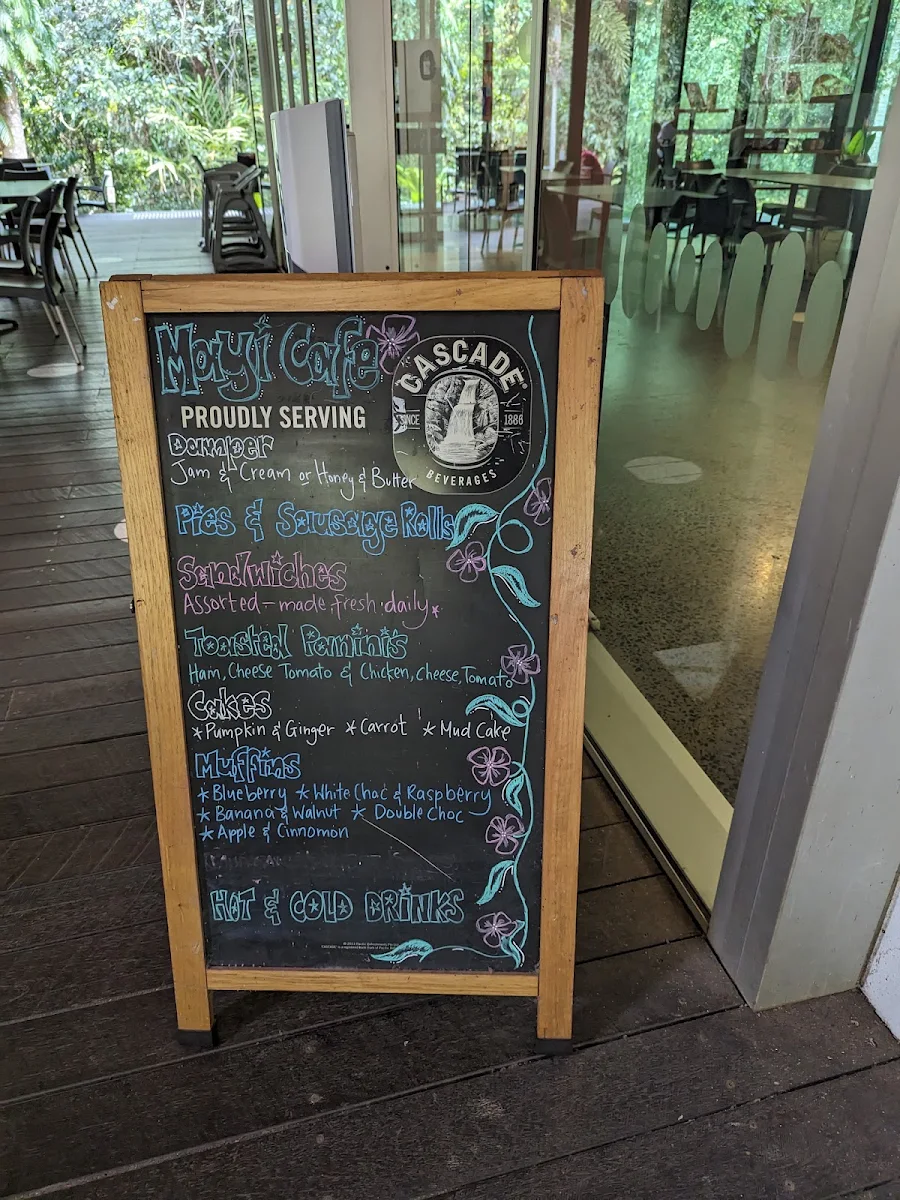 Mayi Cafe
CASCADE®
SINCE 1886
BEVERAGES
PROUDLY SERVING
Damper
Jam & Cream or Honey & Butter
Pies & Sausage Rolls
Sandwiches
Assorted - made fresh daily*
Toasted Paninis
Ham, Cheese Tomato & Chicken, Cheese, Tomato
Cakes
*Pumpkin & Ginger *Carrot *Mud Cake
Muffins
*Blueberry *White Choc & Raspberry
*Banana & Walnut *Double Choc
*Apple & Cinnomon
HOT & COLD DRINKS